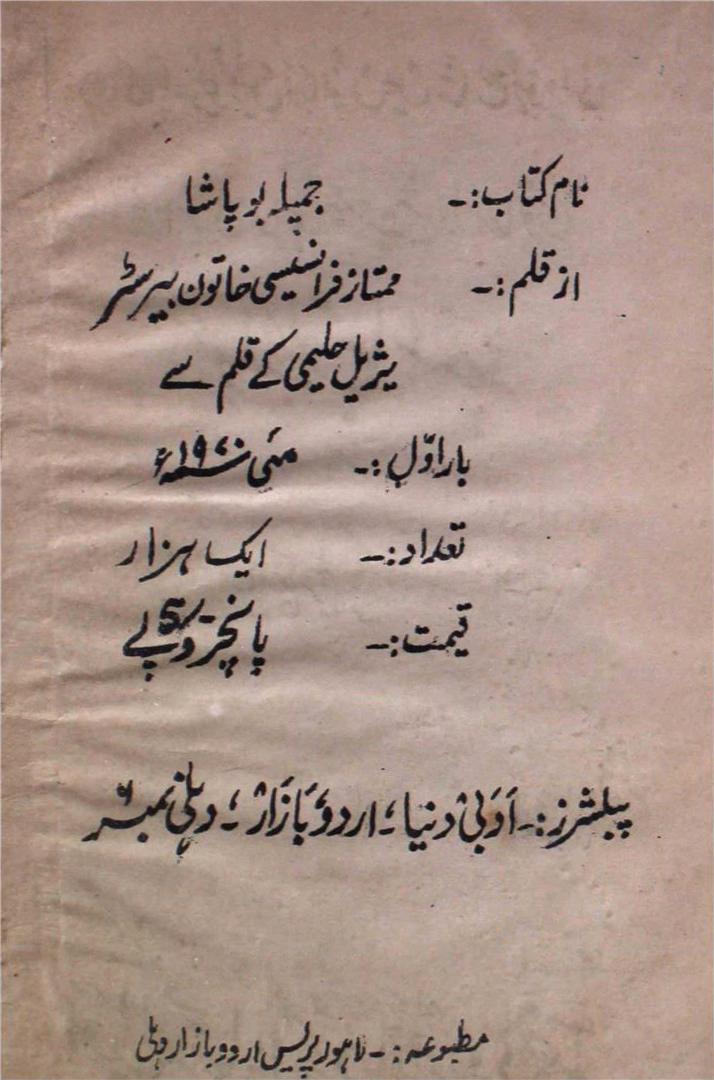 نام کتاب:۔ جمیلہ بو پاشا
از قلم:۔ ممتاز فرانسیسی خاتون بیرسٹر
یثریل حلیمی کے قلم سے
بار اوّل:۔ مئی ۱۹۷۰ء
تعداد:۔ ایک ہزار
قیمت:۔ پانچ روپے 5/-
پبلشرز:۔ ادبی دنیا، اردو بازار، دہلی نمبر ۶
مطبوعہ:۔ لاہور پریس اردو بازار دہلی